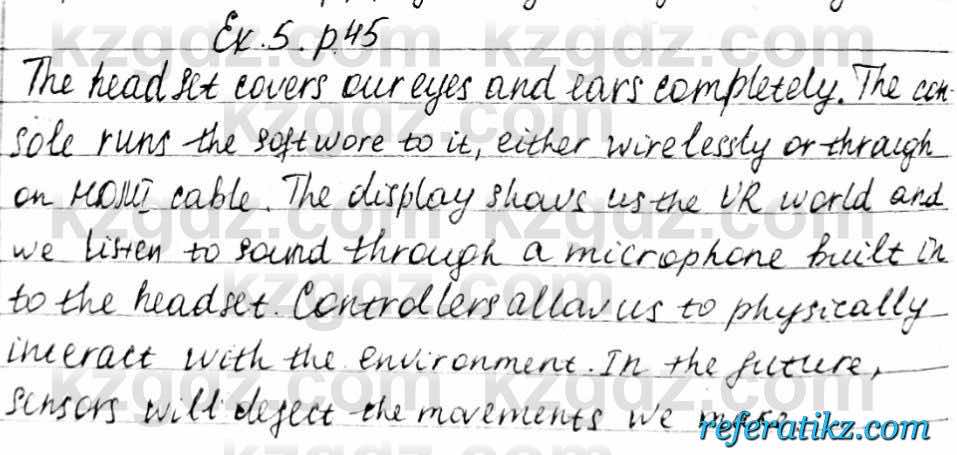 Ex. 5. p45
The head set covers our eyes and ears completely. The con-
sole runs the softwore to it, either wirelessly or through
on HDMI cable. The display shows us the VR world and
we listen to sound through a microphone built in
to the headset. Controllers allow us to physically
interact with the environment. In the future,
sensors will defect the movements we make.
kzgdz.com
referatikz.com